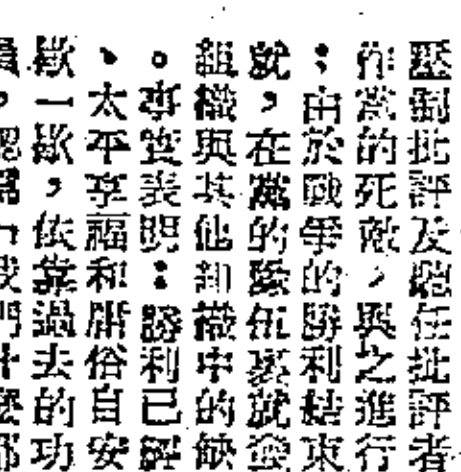 壓制批評及聽任批評者
作黨的死敵，與之進行
；由於戰爭的勝利結束
就，在黨的隊伍裏就發
組織與其他組織中的缺
。事實表明：勝利已經
、太平享福和庸俗自安
歇一歇，依靠過去的功